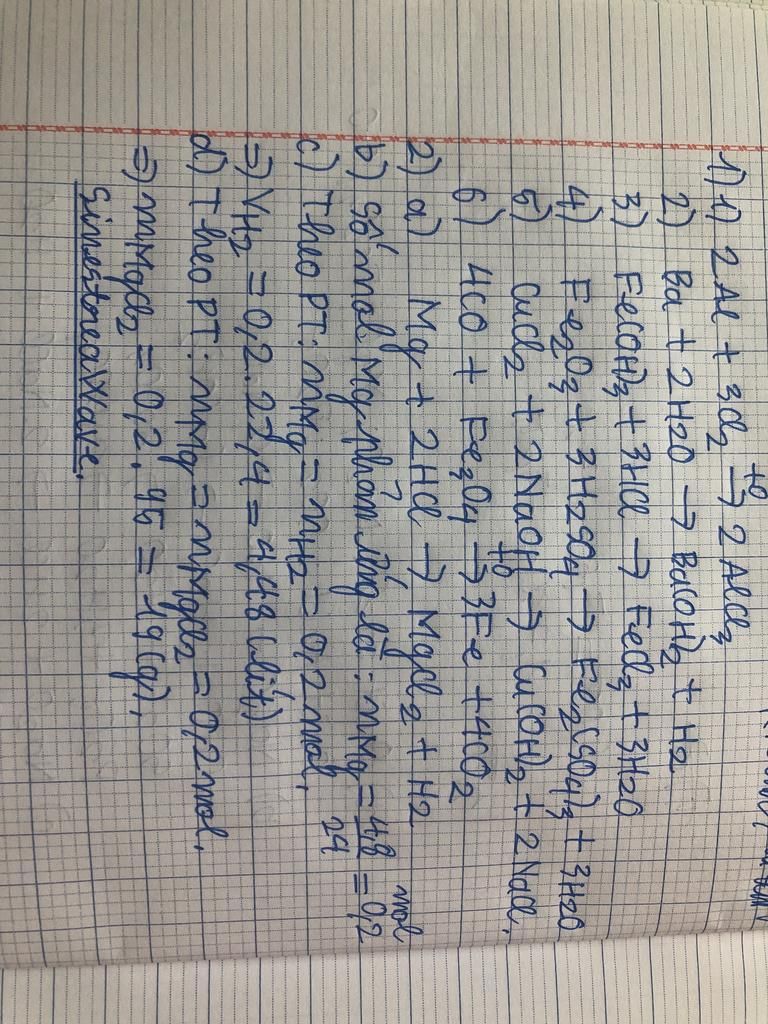 1) 1) 2Al + 3Cl₂ →t⁰ 2AlCl₃
2) Ba + 2H2O → Ba(OH)₂ + H₂
3) Fe(OH)₃ + 3HCl → FeCl₃ + 3H2O
4) Fe₂O₃ + 3H₂SO₄ → Fe₂(SO₄)₃ + 3H2O
5) CuCl₂ + 2NaOH → Cu(OH)₂ + 2NaCl.
6) 4CO + Fe₃O₄ →t⁰ 3Fe + 4CO₂
2) a) Mg + 2HCl → MgCl₂ + H2
b) số mol Mg phản ứng là: nMg = 4,8/24 = 0,2 mol
c) Theo PT: nMg = nH2 = 0,2 mol.
⇒ VH2 = 0,2.22,4 = 4,48 (lít)
d) Theo PT: nMg = nMgCl₂ = 0,2 mol.
⇒ mMgCl₂ = 0,2.95 = 19 (g).